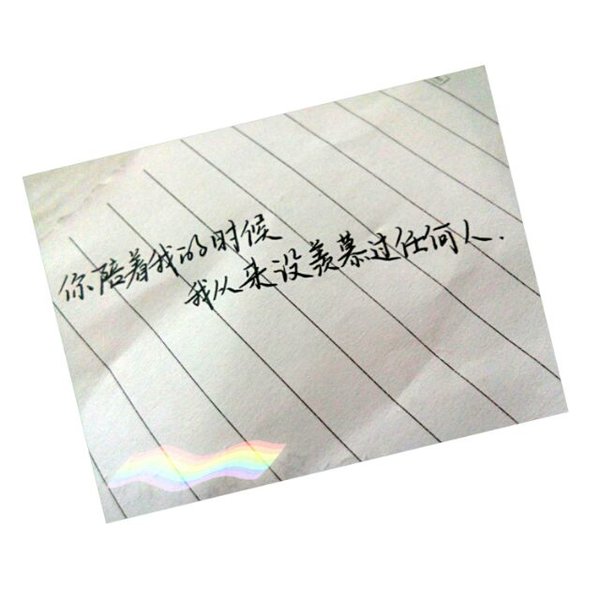 你陪着我的时候
我从来没羡慕过任何人.